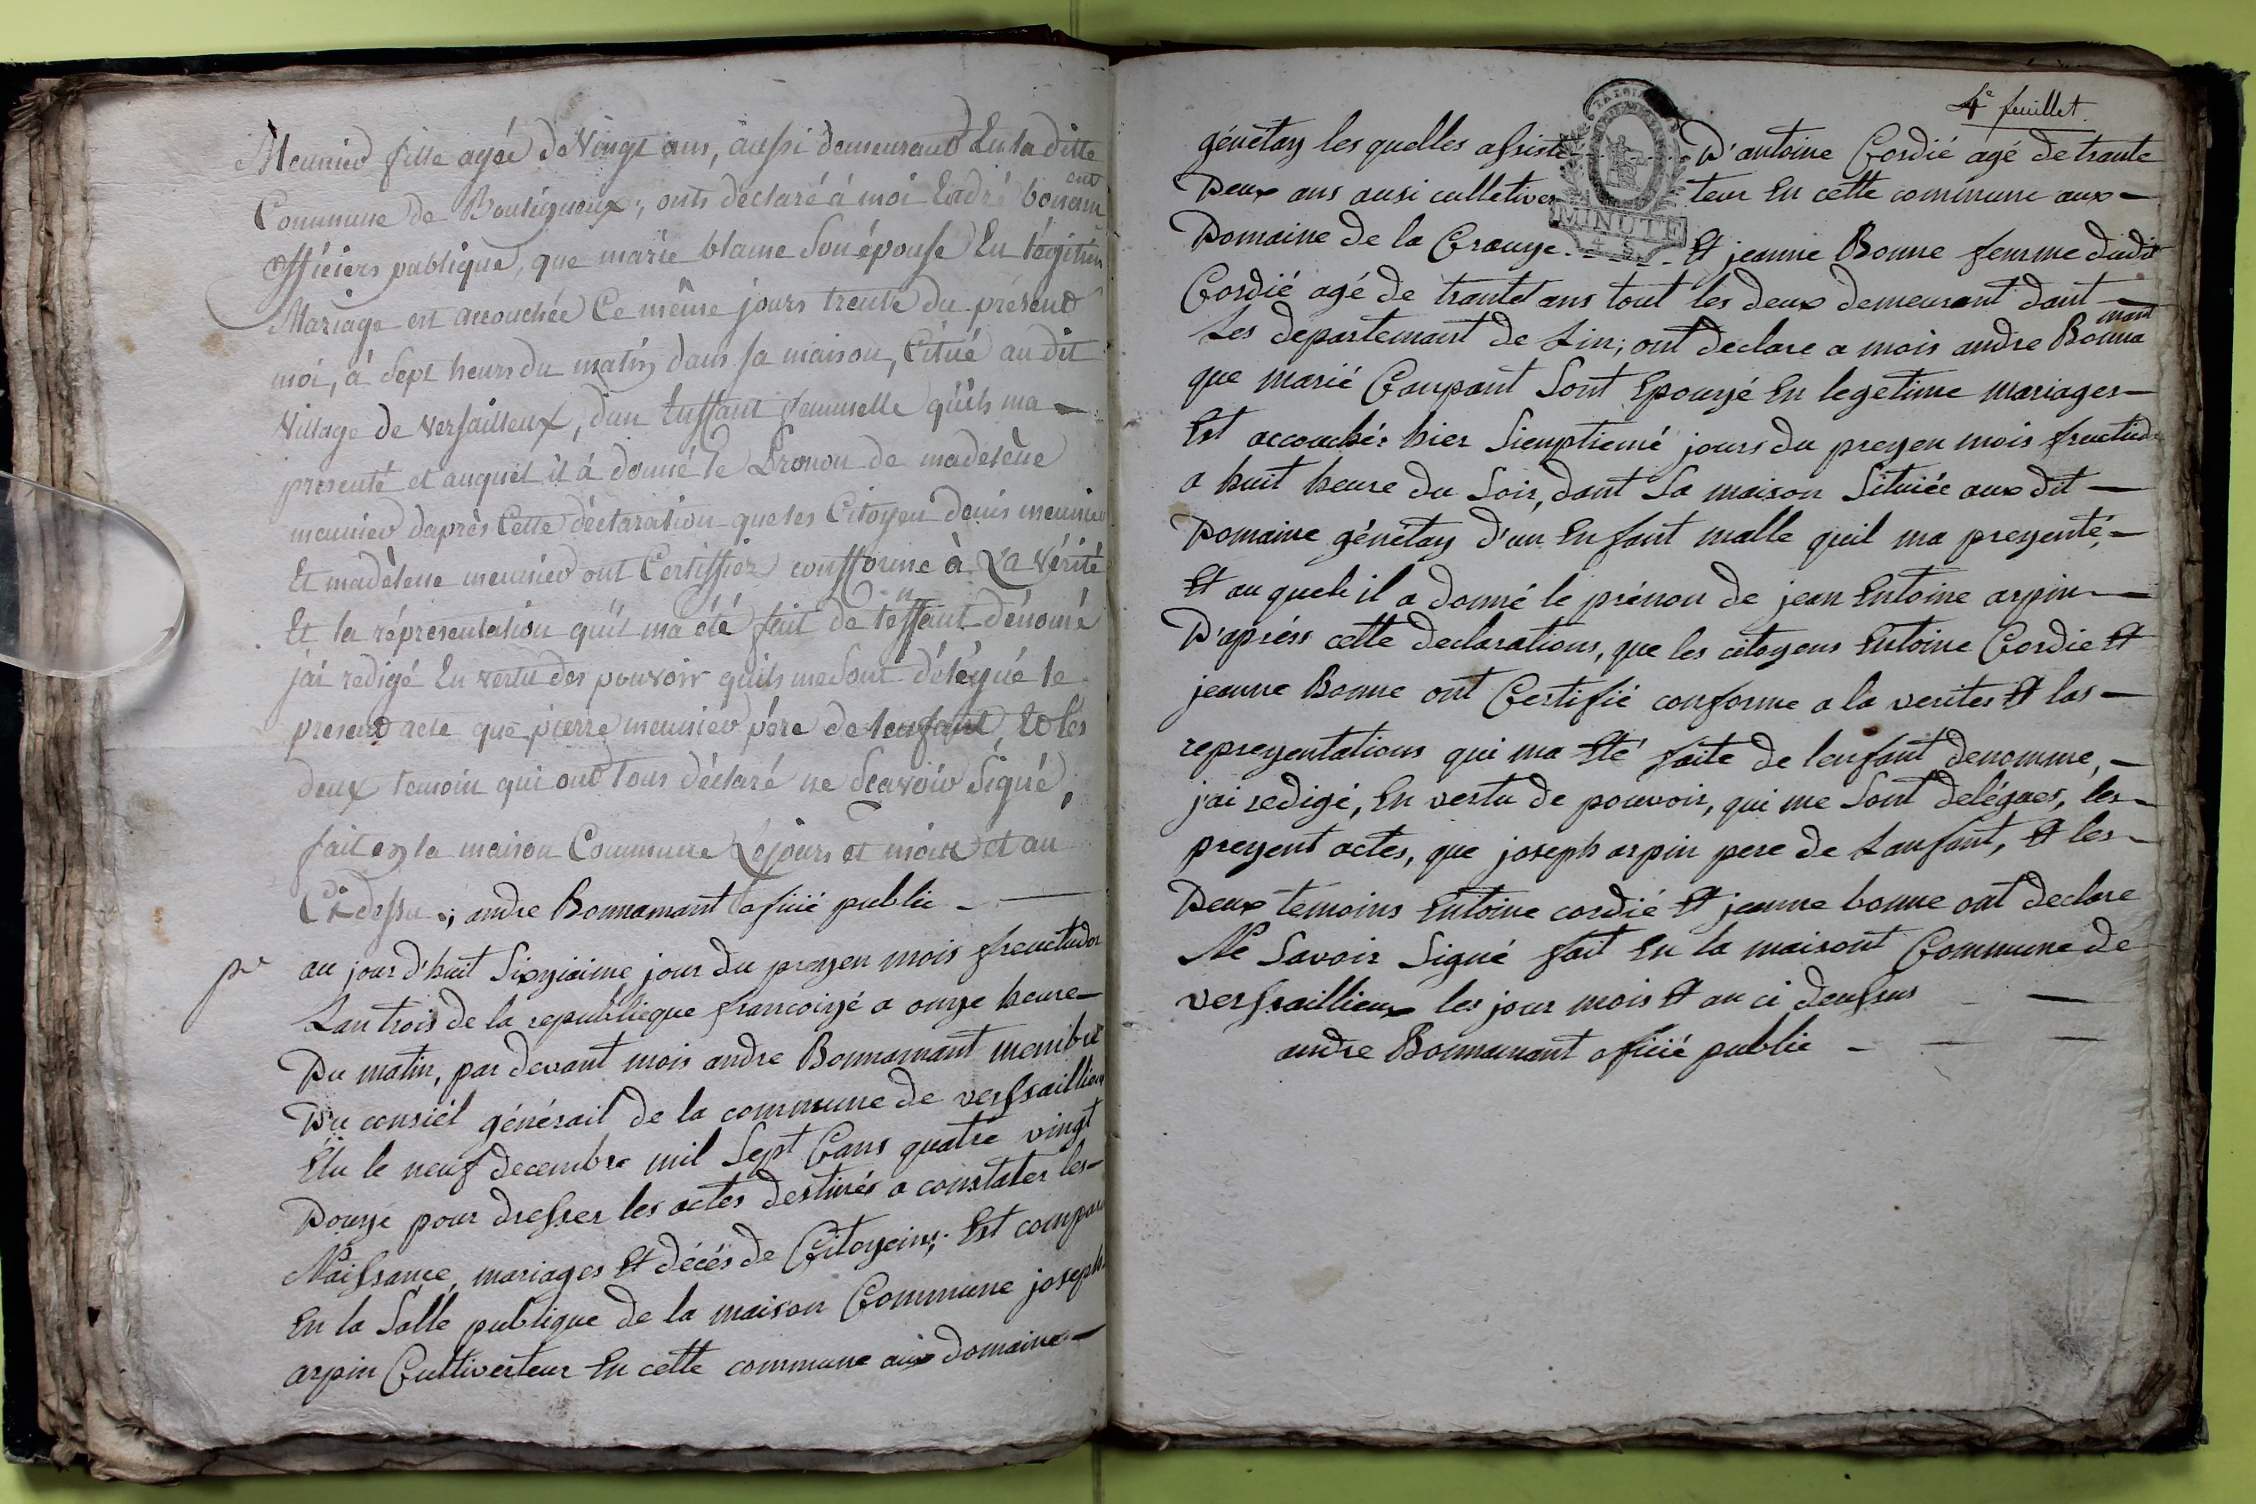 Meunier fille agée de Vingt ans, aussi demeurant En la ditte
Commune de Bouligneux; onts déclaré à moi Endré bonam
ent
officiers publique, que marie blame son épouse En légitim
Mariage est accouchée Ce même jours trente du présent
moi, à Sept heurs du matin, dans sa maison, Citué au dit
Village de Versailleux, d'un Enffant femmelle qu'ils ma —
presenté et auquel il à donné le Pronon de madelène
meunier daprès Cette déclaration que les Citoyen denis meunier
Et madelene meunier ont Certiffier confforme à La Vérité
Et la réprésentation quil ma été fait de leffant dénomé
jai redigé En vertu des pouvoir quils me sont délégué le
present acte que pierre meunier père de lenfant, Et les
deux temoin qui ont tous déclaré ne scavoir signé,
fait en la maison Commune Lejours et mois et an
Ci dessu; andre Bonnamant oficié public —
pe au jour d'huit Sixyiaime jour du preyen mois freuctudor
Lan trois de la republieque francoiyé a onye heure —
Du matin, par devant mois andre Bonnamant membre
Du consiel générail de la commune de versaillieux
Elu le neuf decembre mil Sept Cans quatre vingt
Douye pour dresser les actes destinés a constater les —
Naissance, mariages Et décés de Citoyeins; Est compar
En la Salle publique de la maison Commune joseph
arpin Cultiverteur En cette commune aux domaine —
4e feuillet
génétay les quelles assisté D'antoine Cordié agé de trante
Deux ans ausi culletiver teur En cette commune aux —
MINUTE
4 S
Domaine de la Grange Et jeanne Bonne femme dudit
Cordié agé de trante ans tout les deux demeurant dant —
Les departemant de Lin; ont declare a mois andre Bonna
mant
que marié Coupant Sont Epouyé En legetime mariages —
Est accouchér hier Sieuptiemé jours du preyen mois fructud
a huit heure du Soir, dant Sa maison Situiée aux dit —
Domaine génétay d'un Enfant malle quil ma preyenté, —
Et au quele il a donné le prénon de jean Entoine arpin —
D'apréss cette declarations, que les citoyens Entoine Cordie Et
jeanne Bonne ont Certifié conforme a la verites Et las —
repreyentations qui ma Eté faite de lenfant denomme, —
j'ai redigé, En vertu de pouvoir, qui me Sont deléguer, les —
preyent actes, que joseph arpin pere de Lanfant, Et les —
Deux temoins Entoine cordié Et jeanne bonne ont declare
Ne Savoir Signé fait En la maisont Commune de
versaillieux les jour mois Et an ci deussus —
andre Bonnamant oficié public —